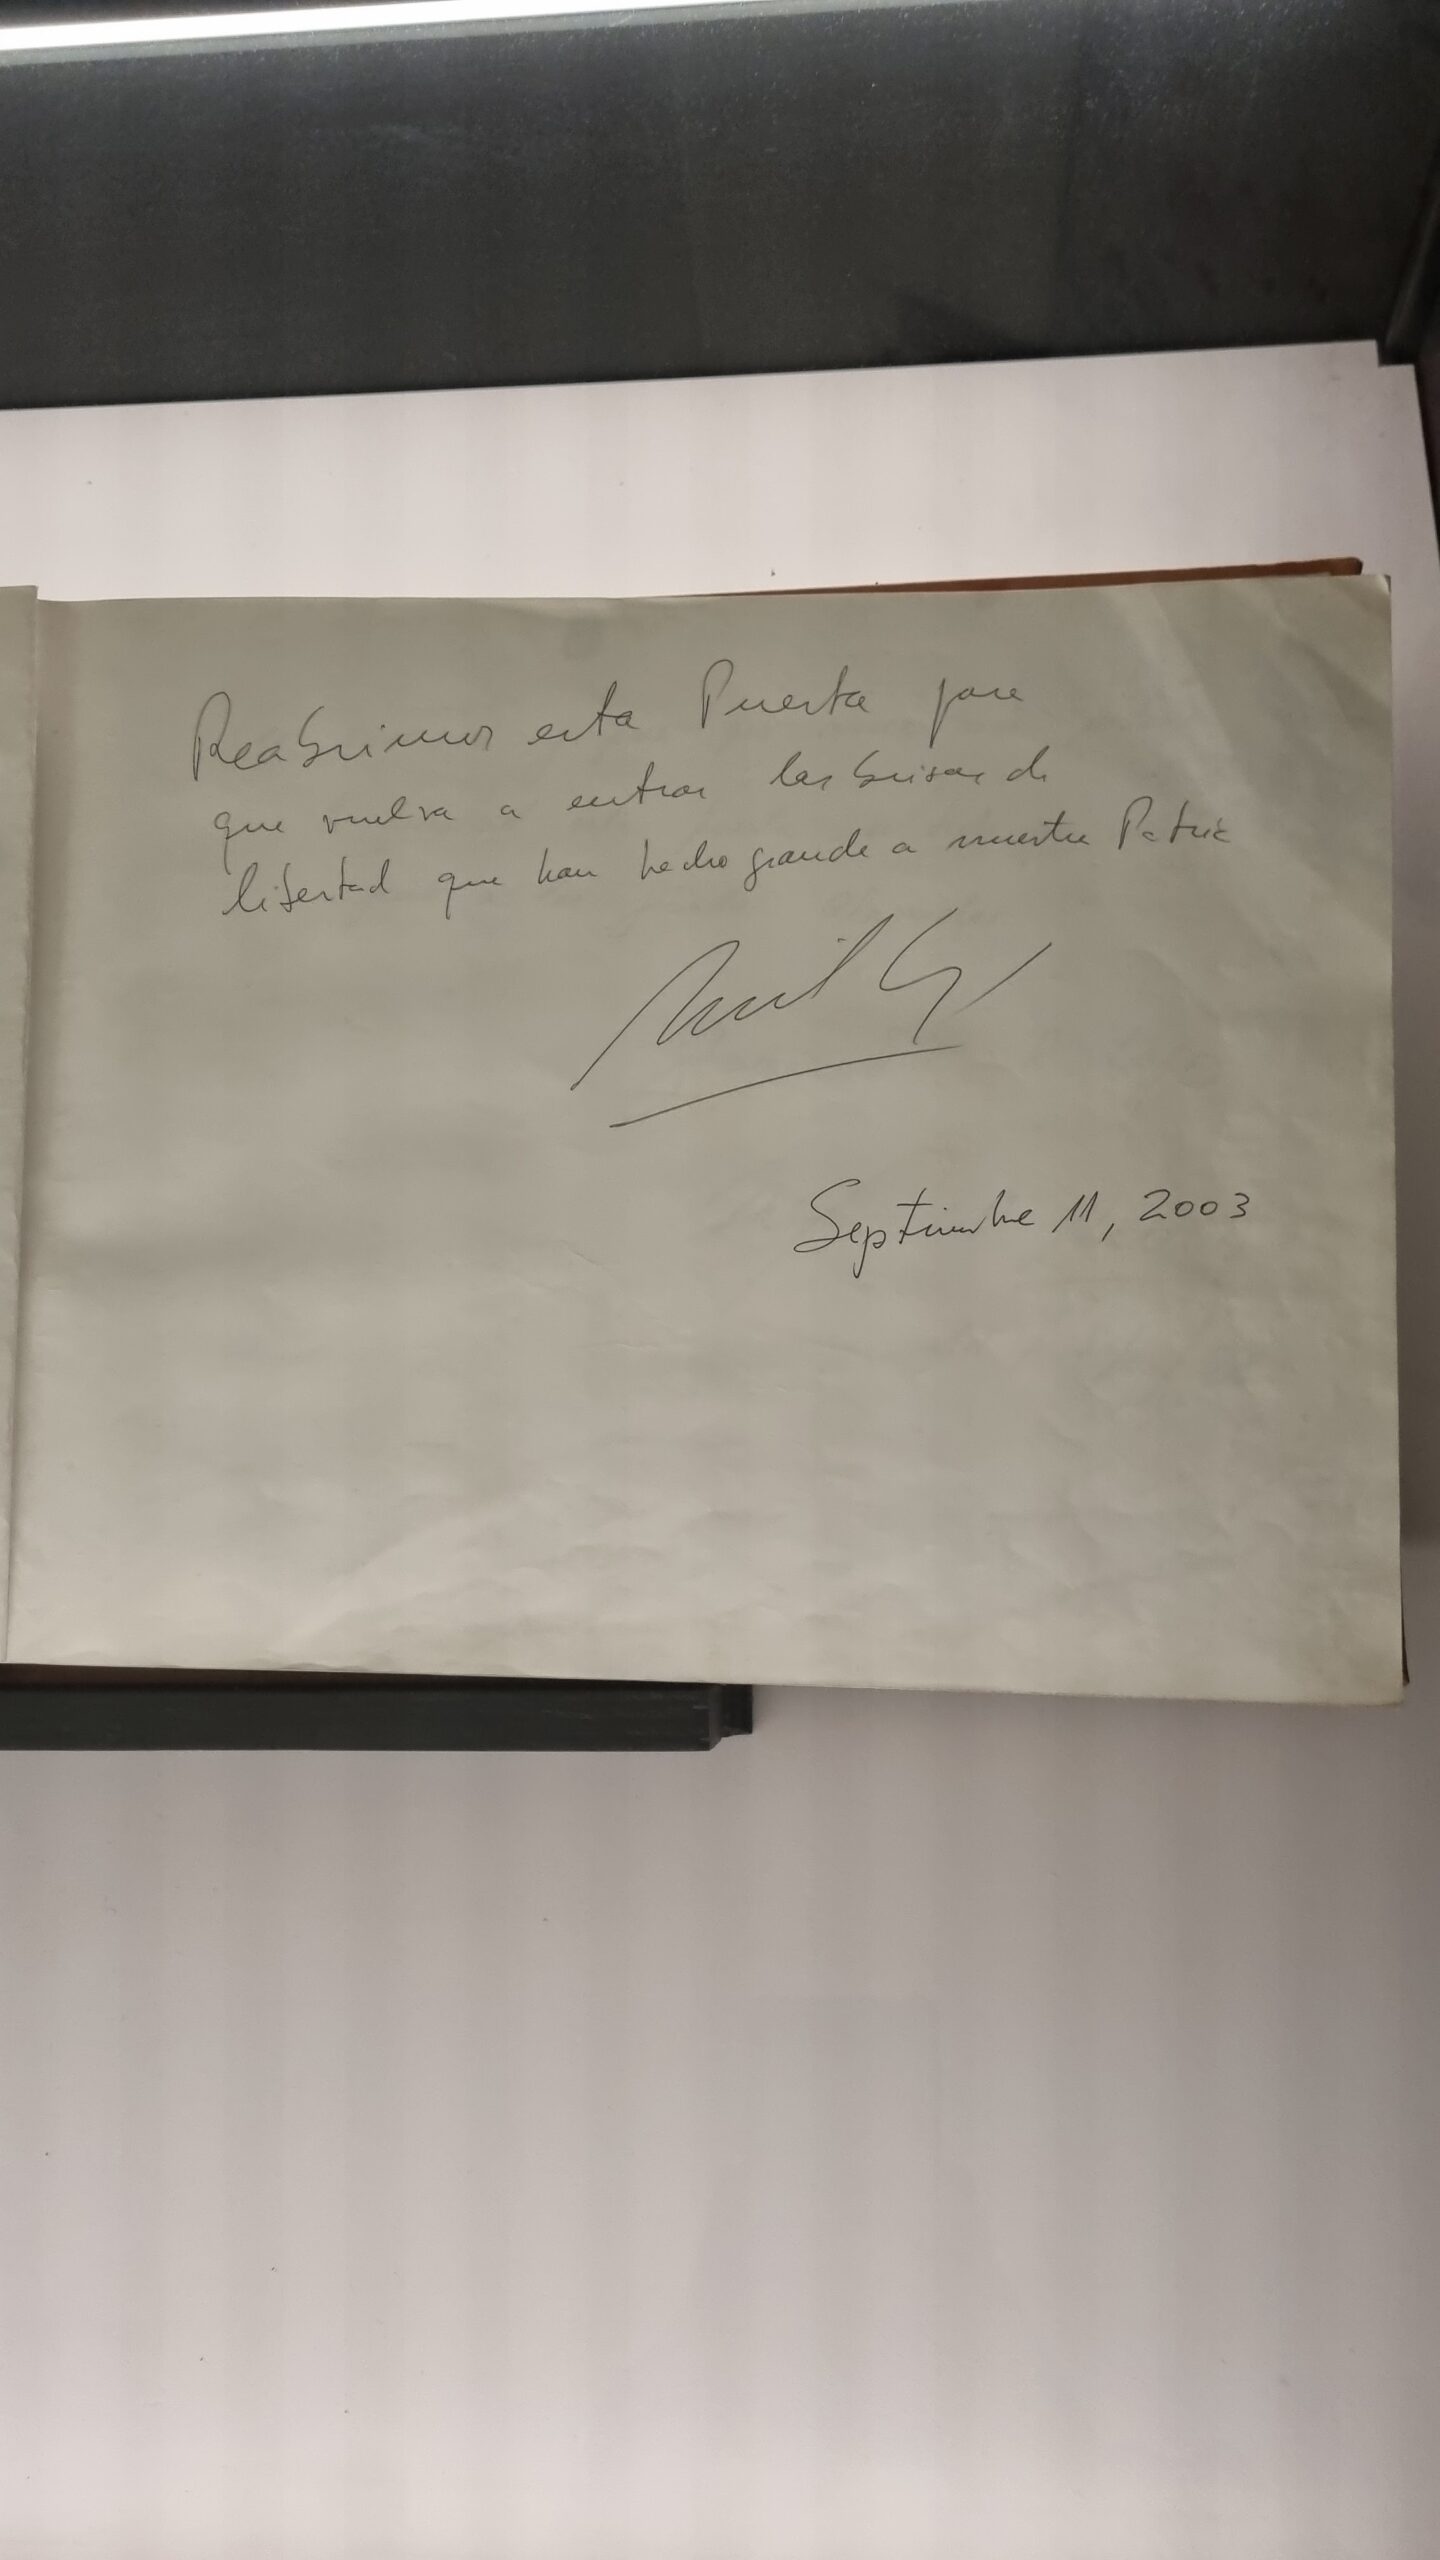 Reabrimos esta Puerta para
que vuelva a entrar las brisas de
libertad que han hecho grande a nuestra Patria
Septiembre 11, 2003